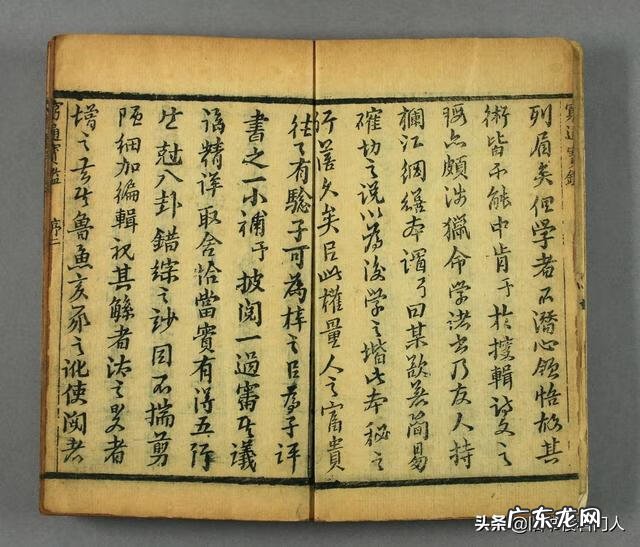 窮通寶鑑
列眉矣但学者不潜心領悟故其
術皆不能中肯予於搜輯詩文之
暇亦頗涉獵命学諸書乃友人持
欄江網繕本謂予曰某欲簡易
確切之說以為後学之堦此本秘之
行篋久矣以此權量人之富貴
往往有驗子可為梓之以為子評
書之一小補予披閱一過審其議
論精詳取舍恰當實有得五行
生尅八卦錯綜之妙因不揣剪
陋細加編輯視其繁者汰之畧者
增之去其魯魚亥豕之訛使閱者
窮通寶鑑 序二
头条 @门人
广东龙网